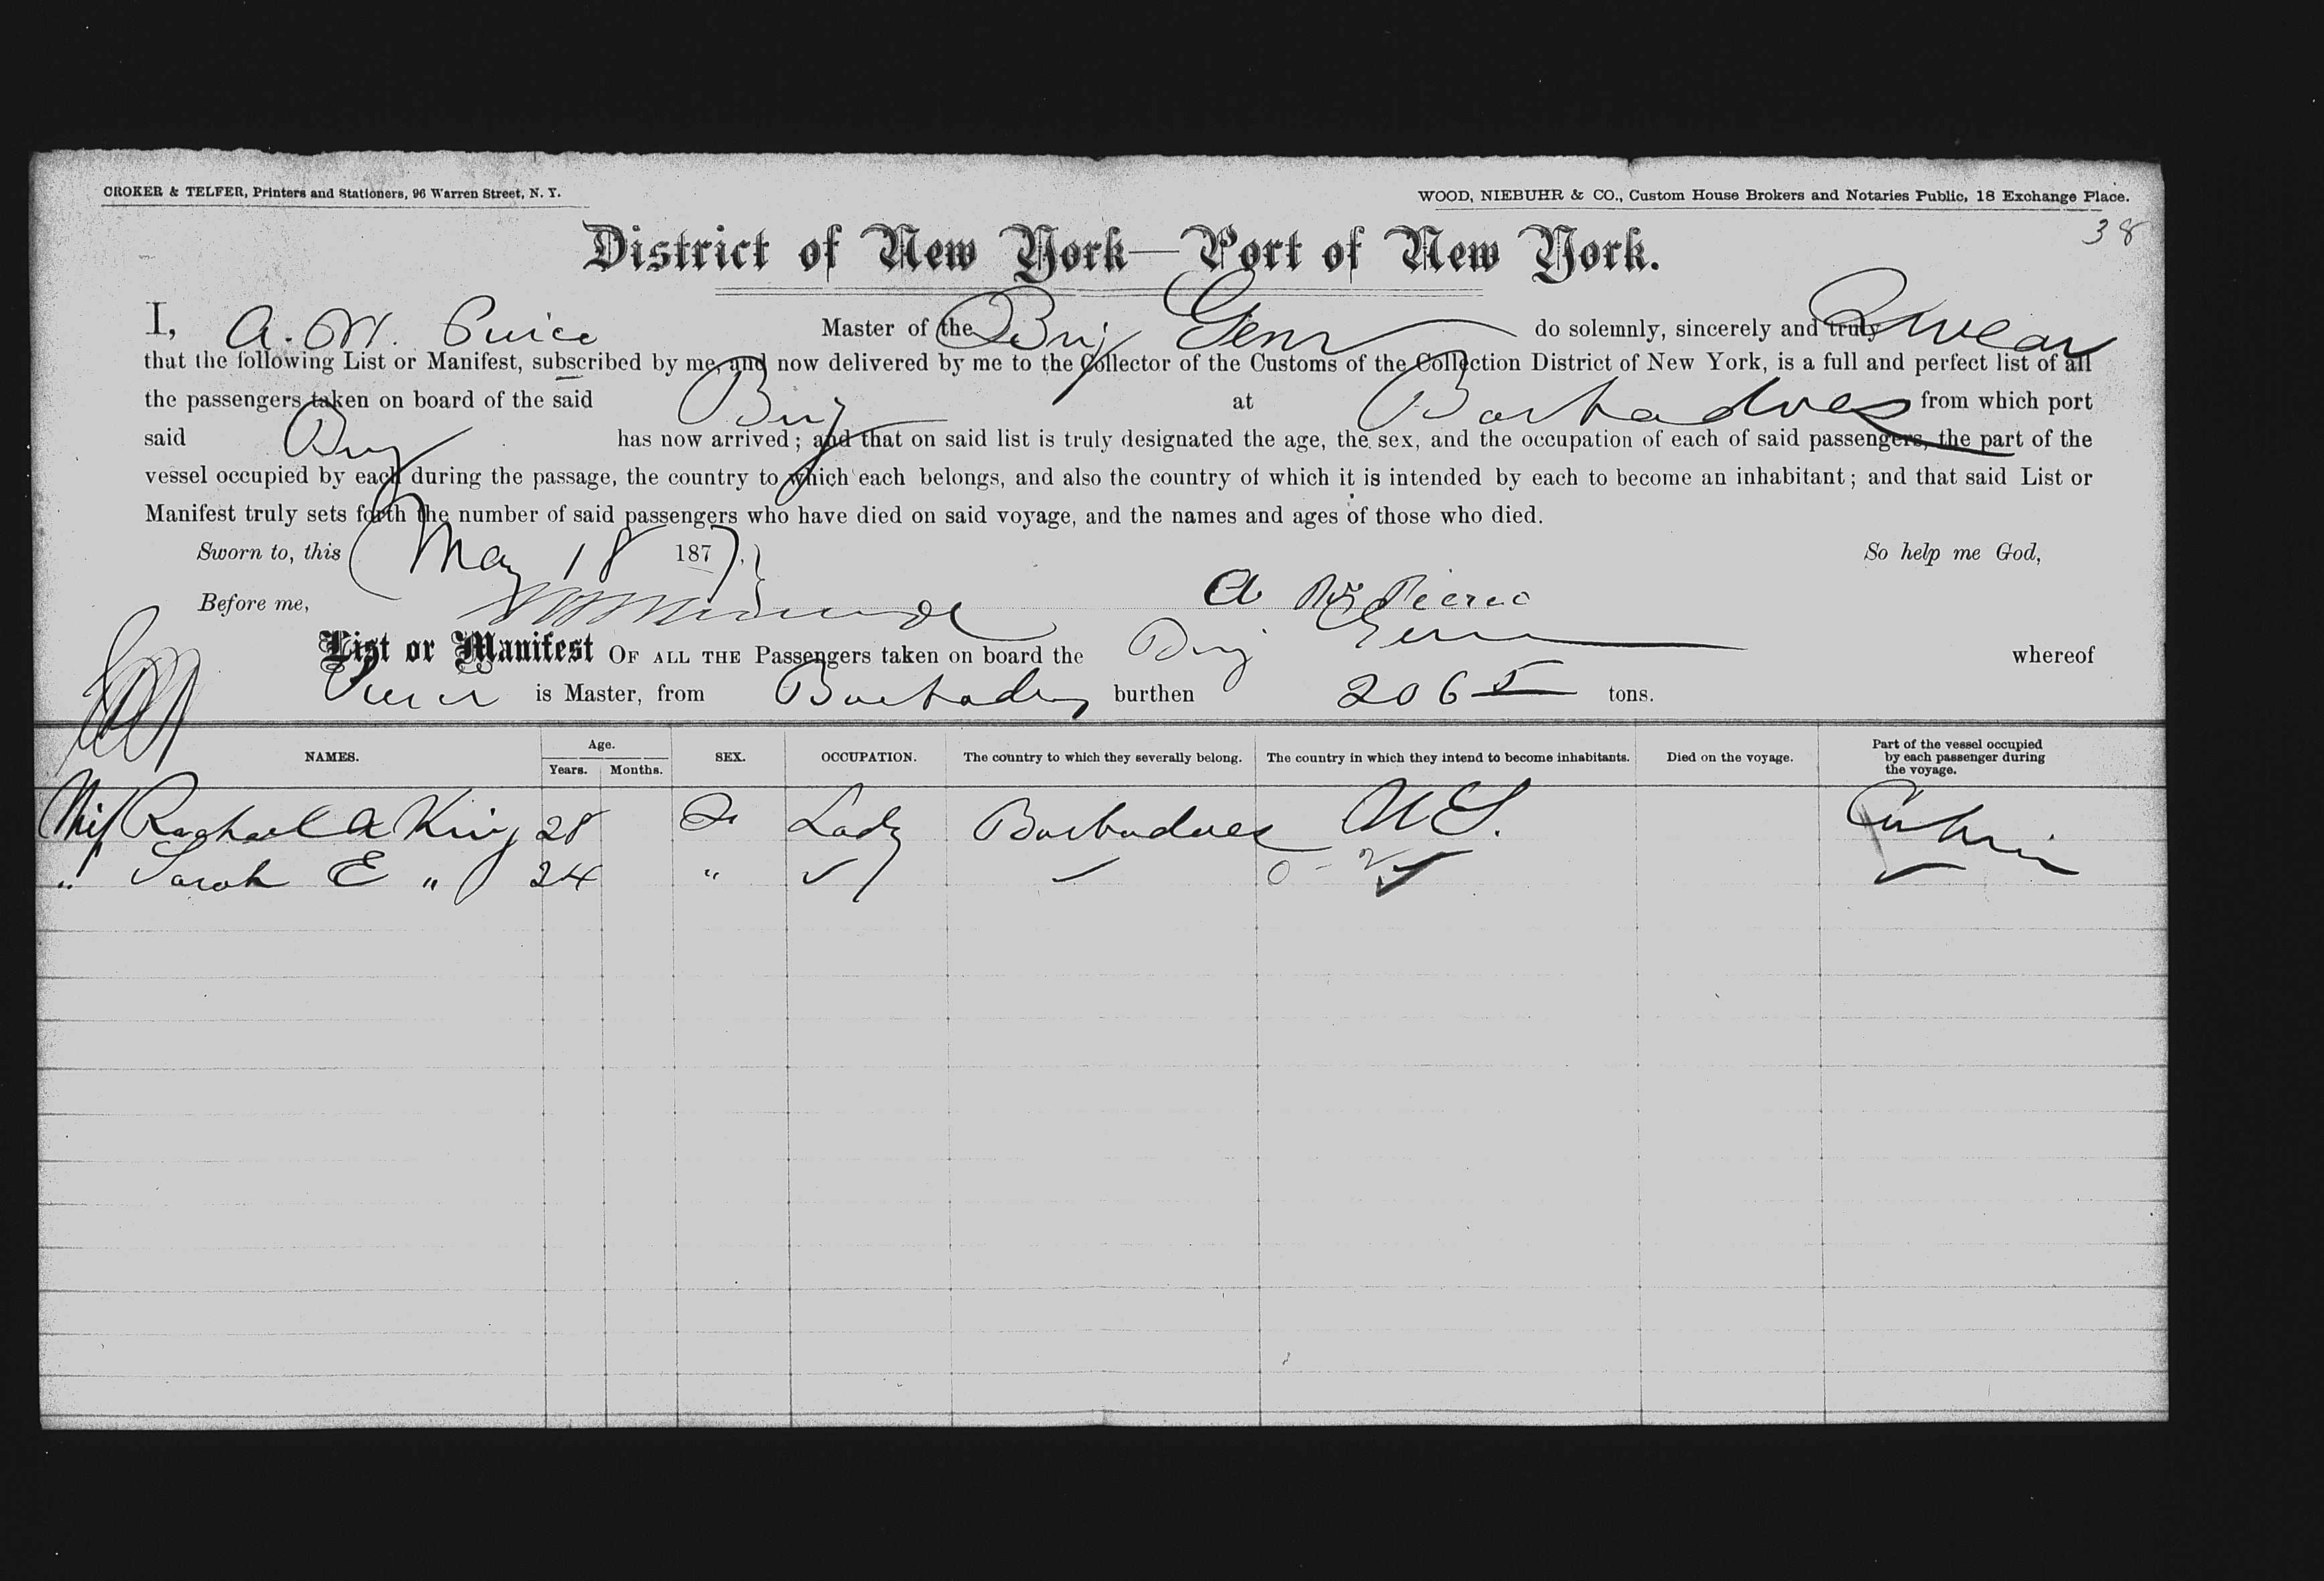 CROKER & TELFER, Printers and Stationers, 96 Warren Street, N. Y.
WOOD, NIEBUHR & CO., Custom House Brokers and Notaries Public, 18 Exchange Place.
38
District of New York—Port of New York.
I, A. M. Peirce Master of the Brig Gem do solemnly, sincerely and truly Swear
that the following List or Manifest, subscribed by me, and now delivered by me to the Collector of the Customs of the Collection District of New York, is a full and perfect list of all
the passengers taken on board of the said Brig at Barbadoes from which port
said Brig has now arrived; and that on said list is truly designated the age, the sex, and the occupation of each of said passengers, the part of the
vessel occupied by each during the passage, the country to which each belongs, and also the country of which it is intended by each to become an inhabitant; and that said List or
Manifest truly sets forth the number of said passengers who have died on said voyage, and the names and ages of those who died.
Sworn to, this May 18 1877, So help me God,
Before me, A Peirce
List or Manifest OF ALL THE Passengers taken on board the Brig Gem whereof
Peirce is Master, from Barbadoes burthen 206 5 tons.
NAMES. Age. Years. Months. SEX. OCCUPATION. The country to which they severally belong. The country in which they intend to become inhabitants. Died on the voyage. Part of the vessel occupied by each passenger during the voyage.
Miss Rachael A King 28 F Lady Barbadoes U S. Cabin
" Sarah E " 24 " ✓ ✓ ✓ ✓